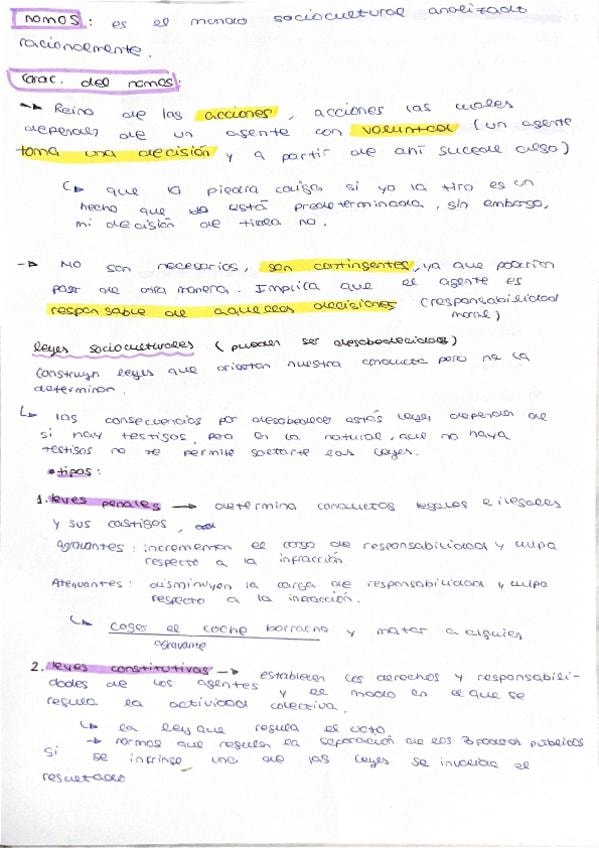 nomos: es el mundo sociocultural analizado
racionalmente.
Carac. del nomos:
→ Reino de las acciones, acciones las cuales
dependen de un agente con voluntad (un agente
toma una decisión y a partir de ahí sucede algo)
↳ que la piedra caiga si yo la tiro es un
hecho que está predeterminada, sin embargo,
mi decisión de tirarla no.
→ NO son necesarios, son contingentes, ya que podrían
pasar de otra manera. Implica que el agente es
responsable de aquellas decisiones (responsabilidad
moral)
leyes socioculturales (pueden ser desobedecidas)
Construyn leyes que orientan nuestra conducta pero no la
determinan.
↳ las consecuencias por desobedecer estás leyes dependen de
si hay testigos, pero en la natural, que no haya
testigos no te permite saltarte las leyes.
• tipos:
1. leyes penales → determina conductas legales e ilegales
y sus castigos,
agravantes: incrementan el carga de responsabilidad y culpa
respecto a la infracción
Atenuantes: disminuyen la carga de responsabilidad y culpa
respecto a la infracción.
↳ coges el coche borracho y matar a alguien
agravante
2. leyes constitutivas → establecen los derechos y responsabili-
dades de los agentes y el modo en el que se
regula la actividad colectiva.
↳ la ley que regula el voto
→ normas que regulen la separación de los 3 poderes públicos
Si se infringe una de las leyes se invalida el
resultado